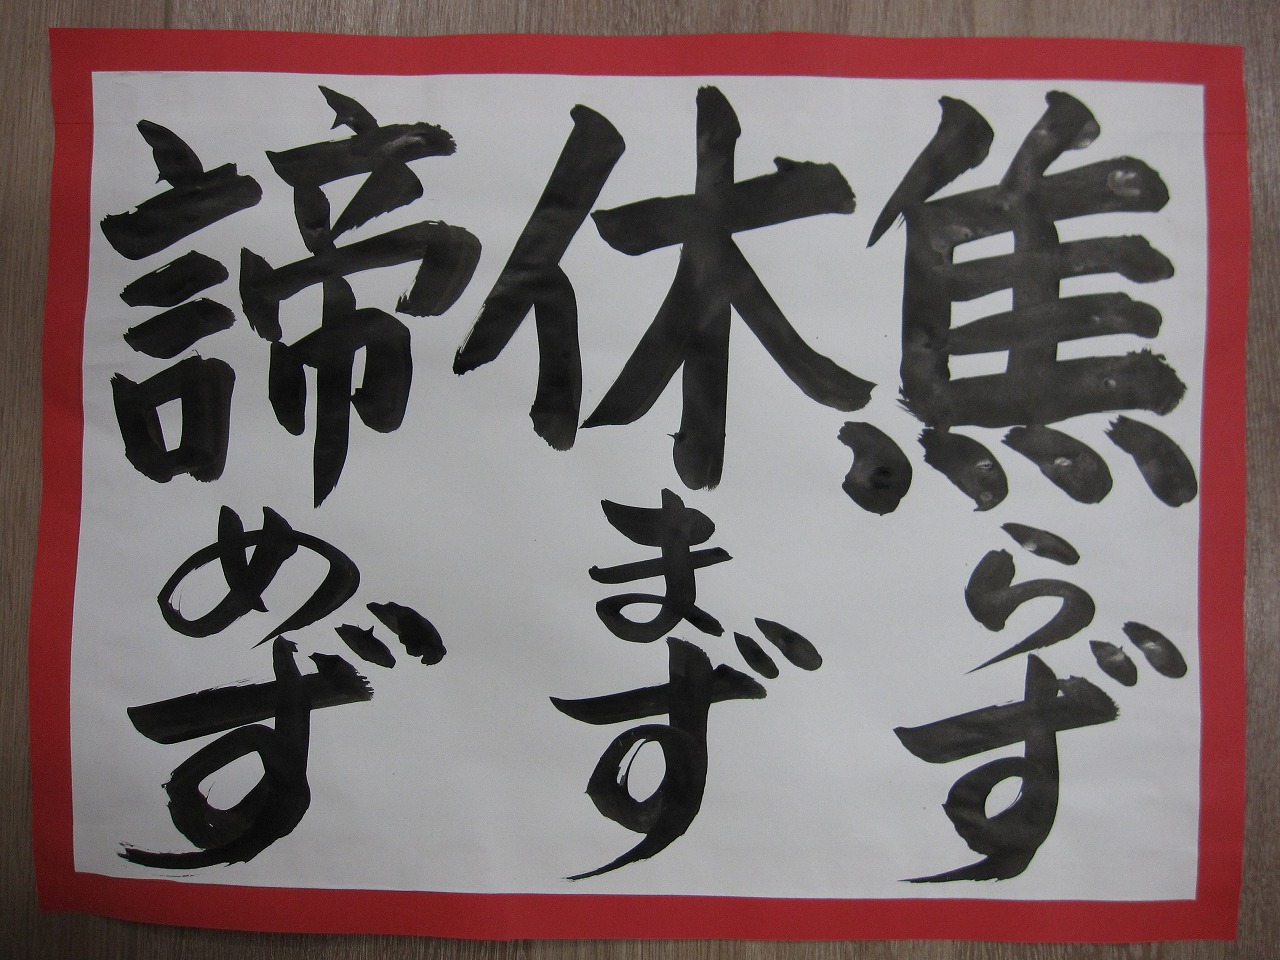 焦らず
休まず
諦めず